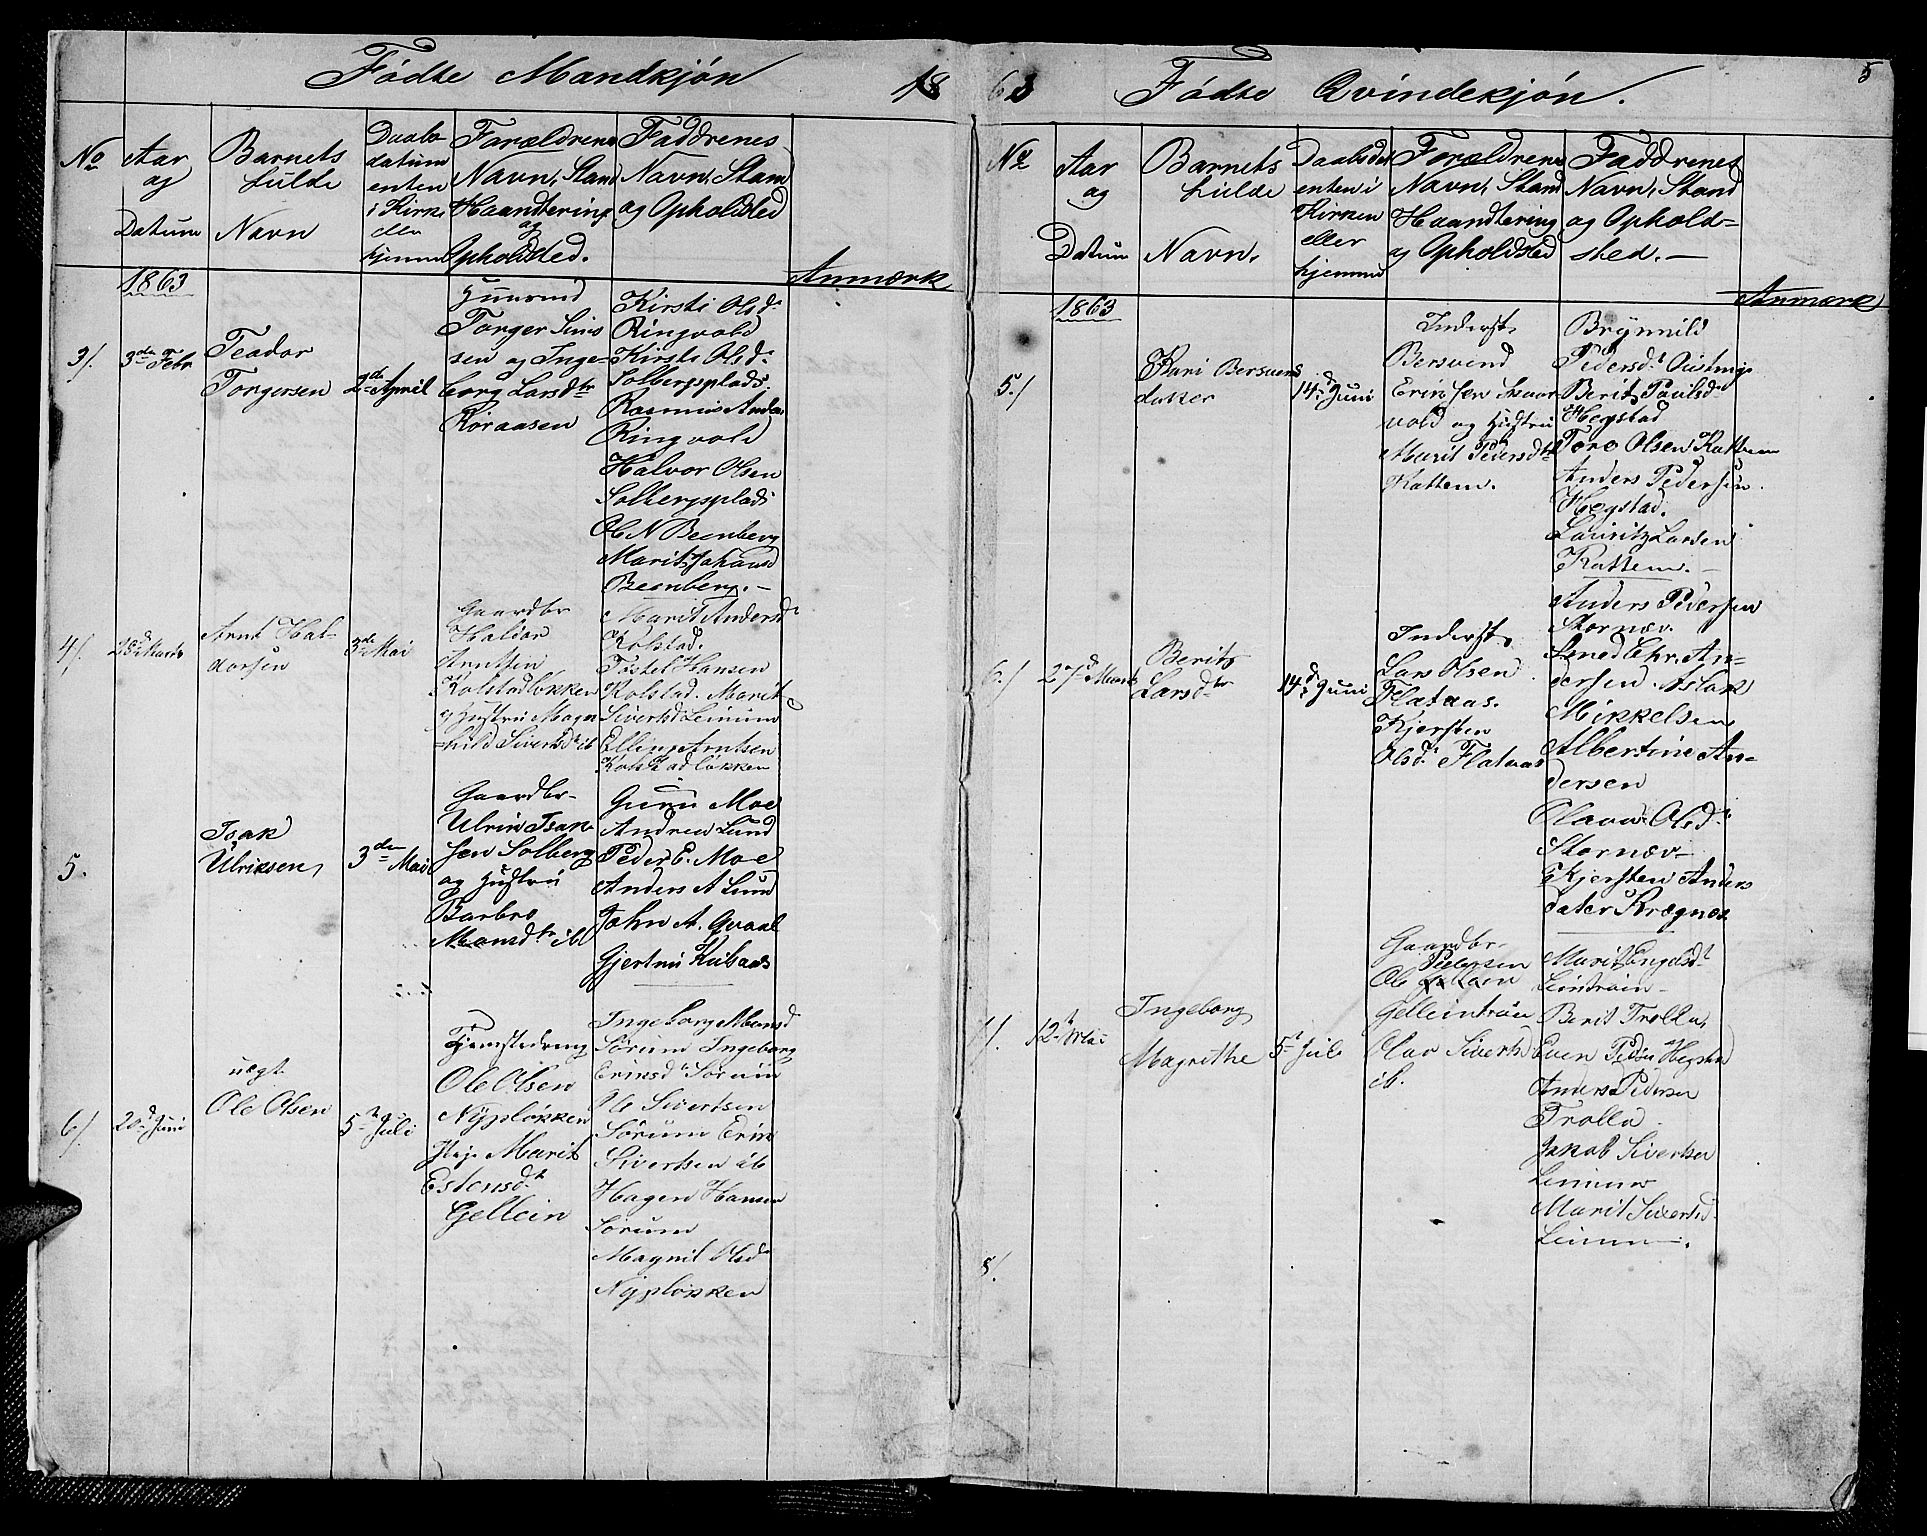 Födte Mandkjön
18
No
Aar
og
Datum
Barnets
fulde
Navn
Daabs
datum
enten
i Kirke
eller
hjemme
Forældrenes
Navn, Stand
Haandtering
og
Opholdsted.
Faddrenes
Navn, Stand
og Opholdsted
Anmærk
1863
3/.
3de Febr
Teodor
Torgersen
2de April
Huusmd
Torger Sims
sen og Inge-
borg Larsdtr
Koraasen
Kirsti Olsd.
Ringvold
Kirsti Olsd.
Solbergsplads.
Rasmus Anders
Ringvold
Halvor Olsen
Solbergsplads
Ole N Beenberg
Marit Johansd
Beenberg.-
4/.
28d Marts
Arnt Hal-
dorsen
3de Mai
Gaardbr
Haldor
Arntsen
Kolstadløkken
og Hustru Magn
=hild Sivertsdt ib
Marit Andersdt
Kolstad.
Tostel Hansen
Kolstad. Marit
Sivertsd Leinum
Elling Arntsen
Kolstadløkken
5.
Isak
Ulriksen
3den Mai
Gaardbr-
Ulrik Isak-
sen Solberg
og Hustru
Barbro
Monsdtr ib
Guru Moe
Andrea Lund
Peder E. Moe
Anders A Lund
John A. Qvaal
Gjertru Kulsaas
6/.
20d Juni
uegt
Ole Olsen
5t Juli
Tjenestedreng
Ole Olsen
Nypløkken
Pige Marit
Estensdt
Gellein
Ingeborg Monsd
Sørum Ingeborg
Eriksdt Sørum
Ole Sivertsen
Sørum Erik
Sivertsen ib
Hagen Hansen
Sørum
Magnil Olsd
Nypløkken
63
Födte Qvindekjön.
5
No
Aar
og
Datum
Barnets
fulde
Navn.
Daabsdat
enten i
Kirken
eller
hjemme
Forældrenes
Navn, Stand
Haandtering
og Opholdsted
Faddrenes
Navn, Stand
og Ophold=
sted.-
Anmærk
1863
5./
Kari Bersvens
datter
14d Juni
Inderst
Bersvend
Eriksen Skaar
vold og Hustru
Marit Pedersdtr
Kattem.
Brynnild
Pedersdt
Berit Paulsd
Hegstad
Tore Olsen Kattem
Anders Pedersen
Hegstad.
Lauritz Larsen
Kattem.-
6./
27d Marts
Berit
Larsdtr
14d Juni
Inderst
Lars Olsen
Flataas.
Kjersten
Olsd. Flataas
Anders Pedersen
Stornæv.
Chr. An=
dersen. Aslak
Mikkelsen
Albertine An=
dersen
Olava Olsd.
Stornæv-
Kjersten Anders
dater Krægnes
7/.
12t Mai
Ingeborg
Magrethe
5t Juli
Gaardbr-
Pedersen
Ole
Gelleintrøen
Olav Sivertsd
ib.
Marit Engelsdt
Leintrøin-
Berit Trolla,
Even Peder Hegstad
Anders Pedersen
Trolla
Jakob Sivertsen
Leinum
Marit Sivertsd
Leinum.
8/.